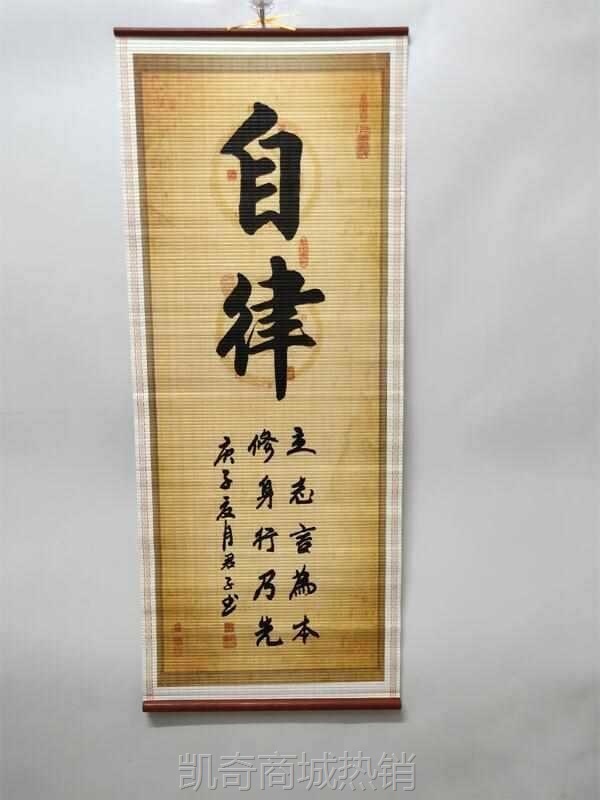 自律
立志言為本
修身行乃先
庚子夏月君子书
凯奇商城热销